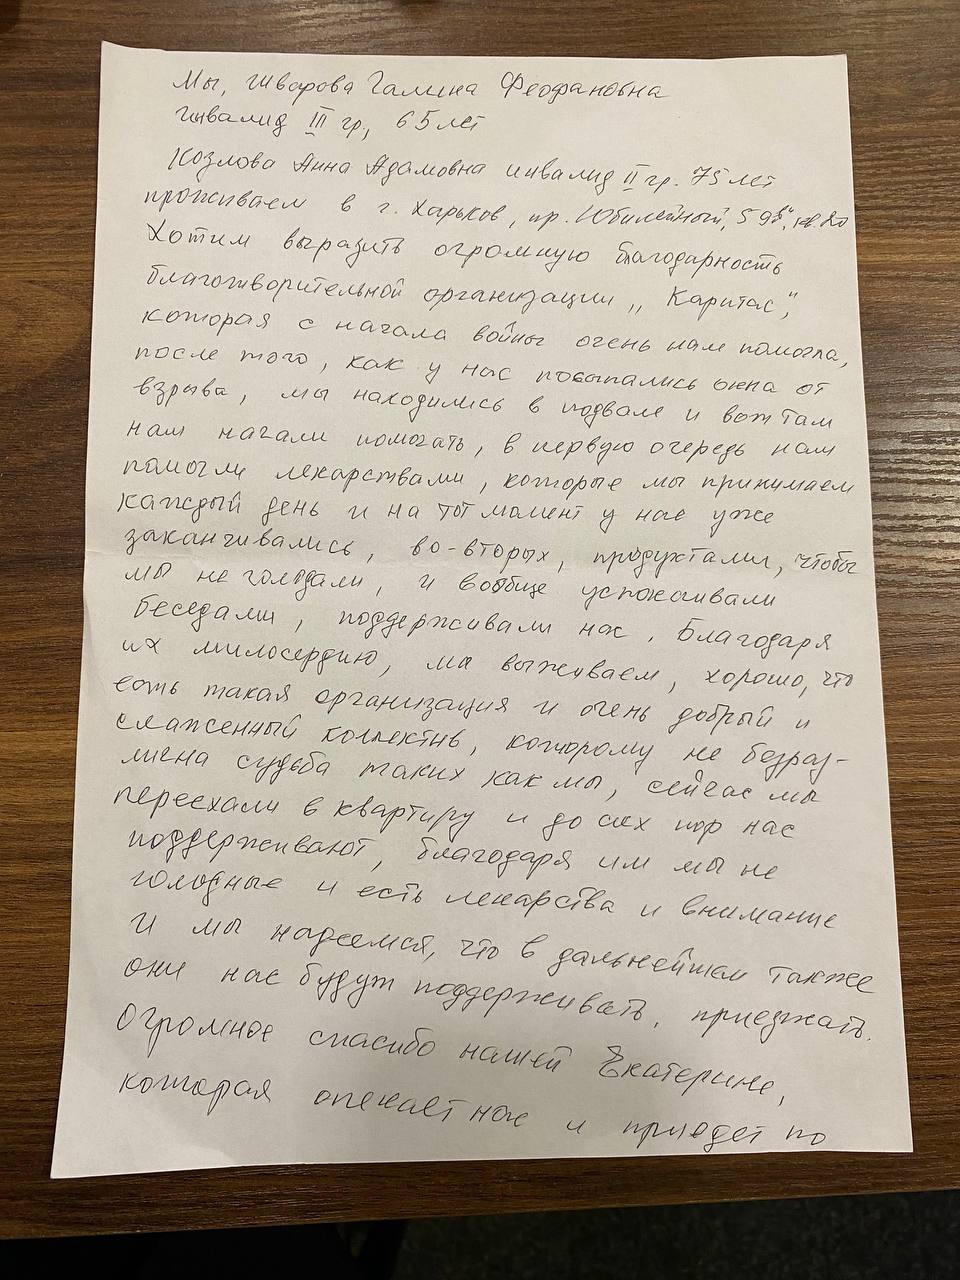 Мы, Шварова Галина Феофановна
инвалид III гр, 65 лет
Козлова Анна Адамовна инвалид II гр. 75 лет
проживаем в г. Харьков, пр. Юбилейный, 59в", кв. 20
Хотим выразить огромную благодарность
благотворительной организации „Каритас",
которая с начала войны очень нам помогла,
после того, как у нас посыпались окна от
взрыва, мы находились в подвале и вот там
нам начали помогать, в первую очередь нам
помогли лекарствами, которые мы принимаем
каждый день и на тот момент у нас уже
заканчивались, во-вторых, продуктами, чтобы
мы не голодали, и вообще успокаивали
беседами, поддерживали нас. Благодаря
их милосердию, мы выживаем, хорошо, что
есть такая организация и очень добрый и
слаженный коллектив, которому не безраз-
лична судьба таких как мы, сейчас мы
переехали в квартиру и до сих пор нас
поддерживают, благодаря им мы не
голодные и есть лекарства и внимание
И мы надеемся, что в дальнейшем также
они нас будут поддерживать, приезжать.
Огромное спасибо нашей Екатерине,
которая опекает нас и приедет по